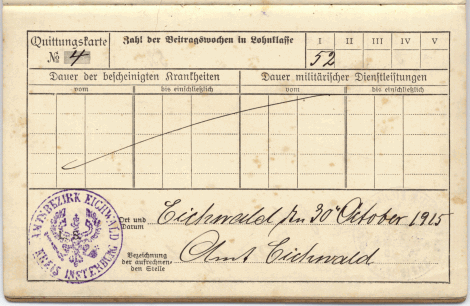 Quittungskarte
№ 4
Zahl der Beitragswochen in Lohnklasse
I II III IV V
52
Dauer der bescheinigten Krankheiten
Dauer militärischer Dienstleistungen
vom bis einschließlich vom bis einschließlich
AMTSBEZIRK EICHWALD
KREIS INSTERBURG
Ort und Datum
Eichwald den 30 Oktober 1915
Bezeichnung
der aufrechnen-
den Stelle
Amt Eichwald